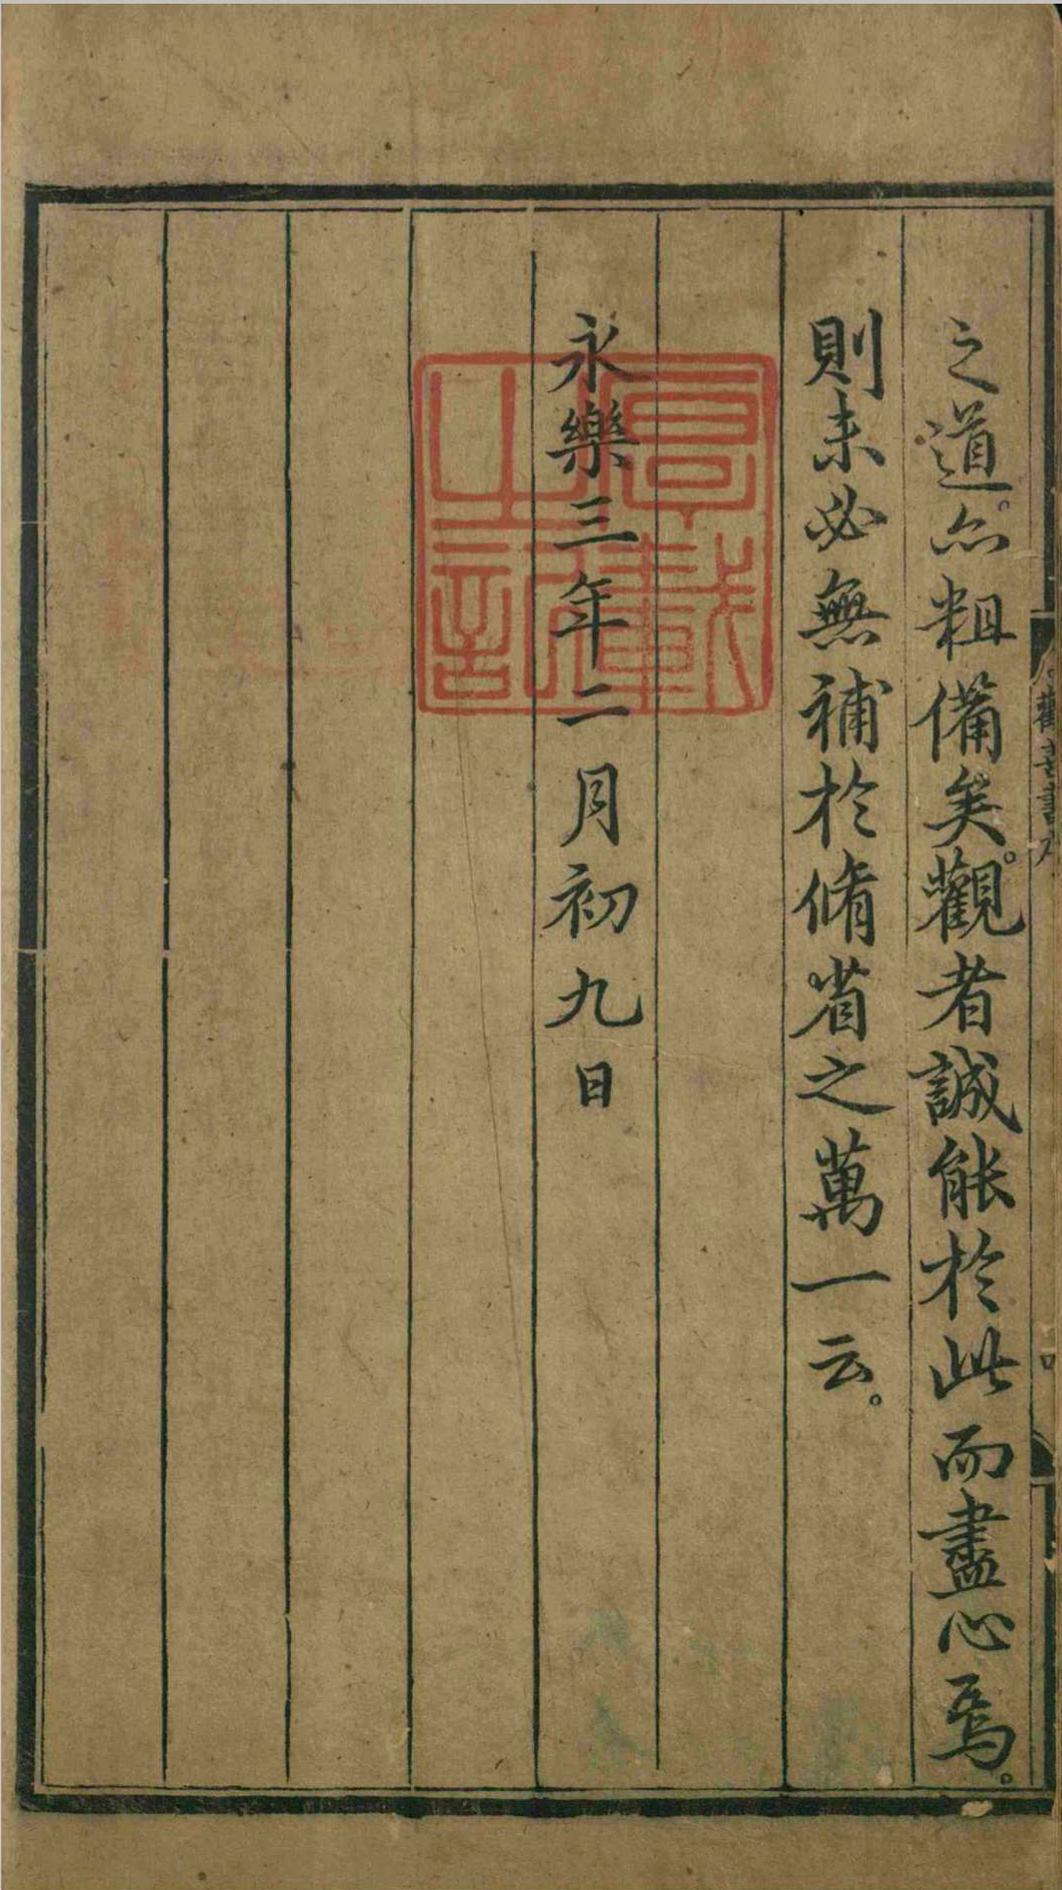 之道。亦粗備矣。觀者誠能於此而盡心焉。
則未必無補於脩省之萬一云。
永樂三年二月初九日
厚載之記
勸善書序